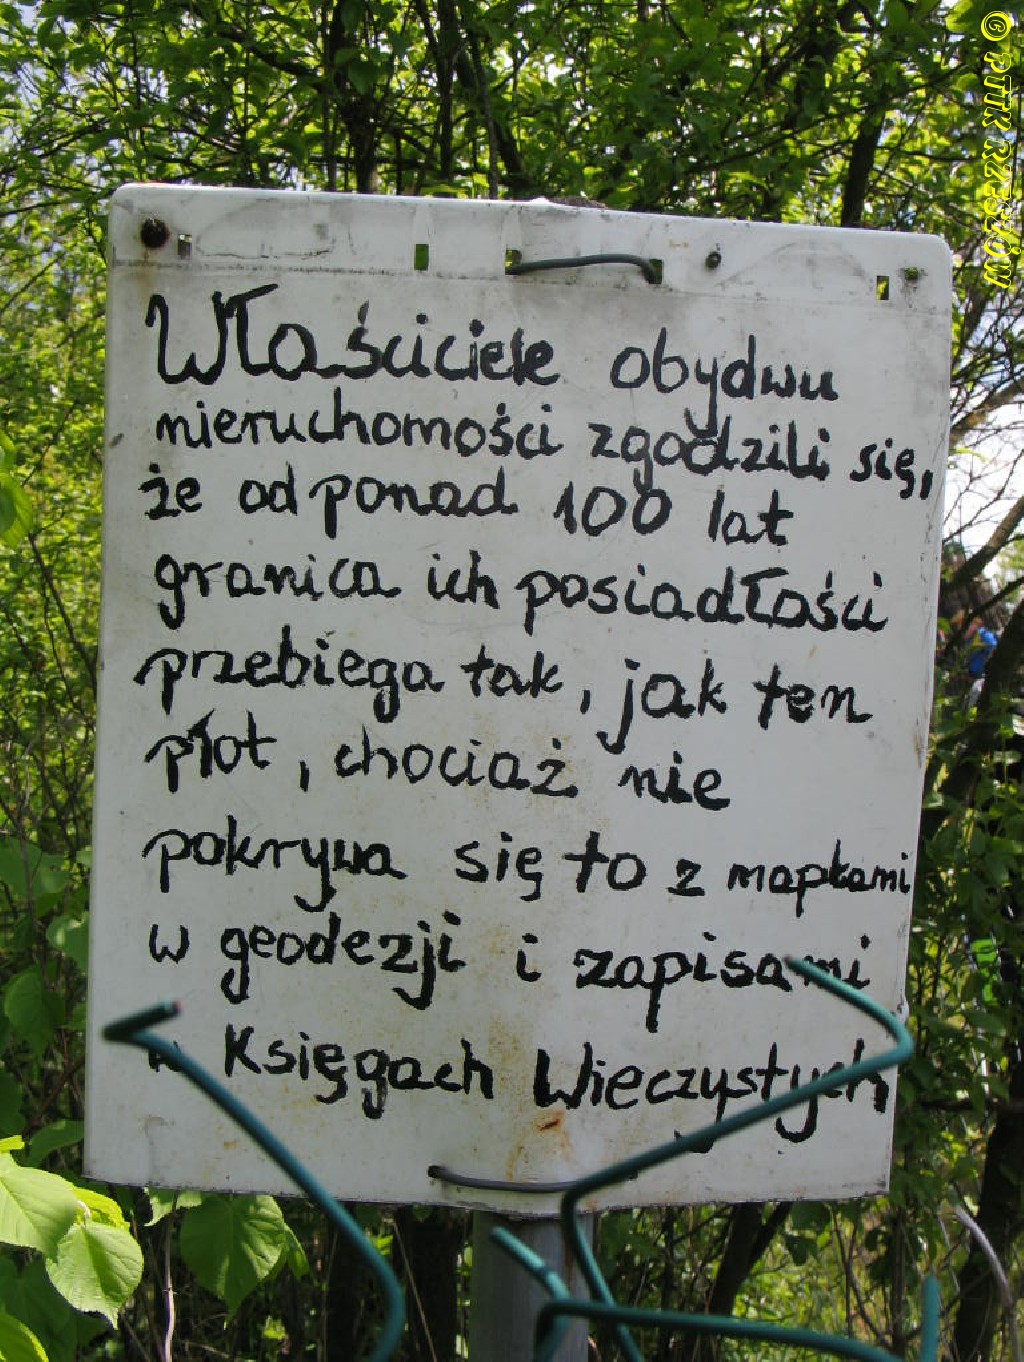 Właściciele obydwu
nieruchomości zgodzili się,
że od ponad 100 lat
granica ich posiadłości
przebiega tak, jak ten
płot, chociaż nie
pokrywa się to z mapkami
w geodezji i zapisami
w Księgach Wieczystych
© PTTK RZESZÓW